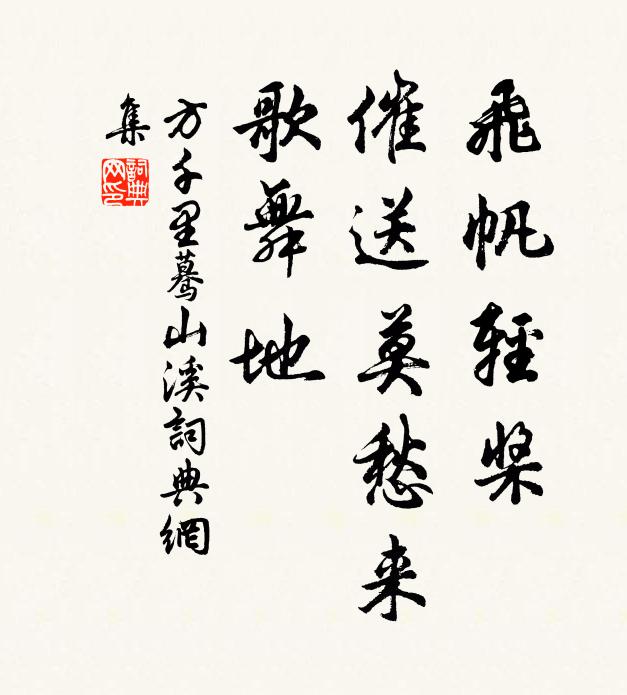 飛帆輕槳
催送莫愁来
歌舞地
方千里驀山溪詞典網
集
詞典
网印